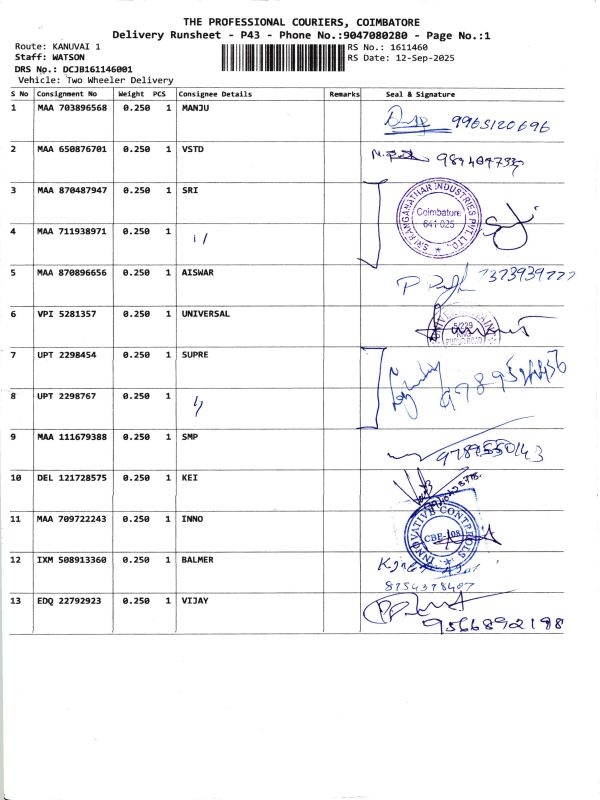 THE PROFESSIONAL COURIERS, COIMBATORE
Delivery Runsheet - P43 - Phone No.:9047080280 - Page No.:1
Route: KANUVAI 1 RS No.: 1611460
Staff: WATSON RS Date: 12-Sep-2025
DRS No.: DCJB161146001
Vehicle: Two Wheeler Delivery
S No Consignment No Weight PCS Consignee Details Remarks Seal & Signature
1 MAA 703896568 0.250 1 MANJU
9965120696
2 MAA 650876701 0.250 1 VSTD
3 MAA 870487947 0.250 1 SRI
SRI RANGANATHAR INDUSTRIES PVT. LTD.
Coimbatore
641 025
4 MAA 711938971 0.250 1
5 MAA 870896656 0.250 1 AISWAR
6 VPI 5281357 0.250 1 UNIVERSAL
7 UPT 2298454 0.250 1 SUPRE
8 UPT 2298767 0.250 1
9 MAA 111679388 0.250 1 SMP
10 DEL 121728575 0.250 1 KEI
11 MAA 709722243 0.250 1 INNO
INNOVATIVE CONTROLS
12 IXM 508913360 0.250 1 BALMER
8754378407
13 EDQ 22792923 0.250 1 VIJAY
9566892198